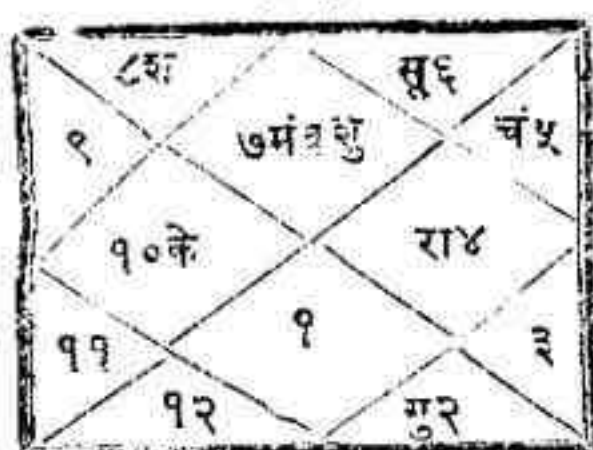 ८श सू६
९ ७मंबुशु चं५
१०के रा४
११ १ ३
१२ गु२